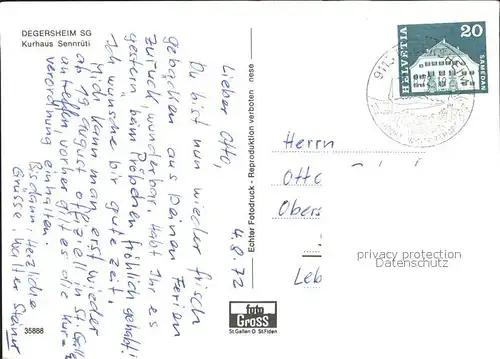 DEGERSHEIM SG
Kurhaus Sennrüti
4.8.72
Lieber Otto,
Du bist nun wieder frisch
gebacken aus Deinen Ferien
zurück, wunderbar. Habt Ihr es
gestern beim Pröbchen fröhlich gehabt?
Ich wünsche Dir gute Zeit.
Mich kann man erst wieder
ab 19. August offiziell in St. Galle
antreffen, vorher gilt es die Kur-
verordnung einhalten.
Bis dann: Herzliche
Grüsse: Walter Steiner
Echter Fotodruck - Reproduktion verboten
HELVETIA
20
SAMEDAN
Herrn
Otto
Obers
Leb
privacy protection
Datenschutz
35888
foto
Gross
St.Gallen O St.Fiden